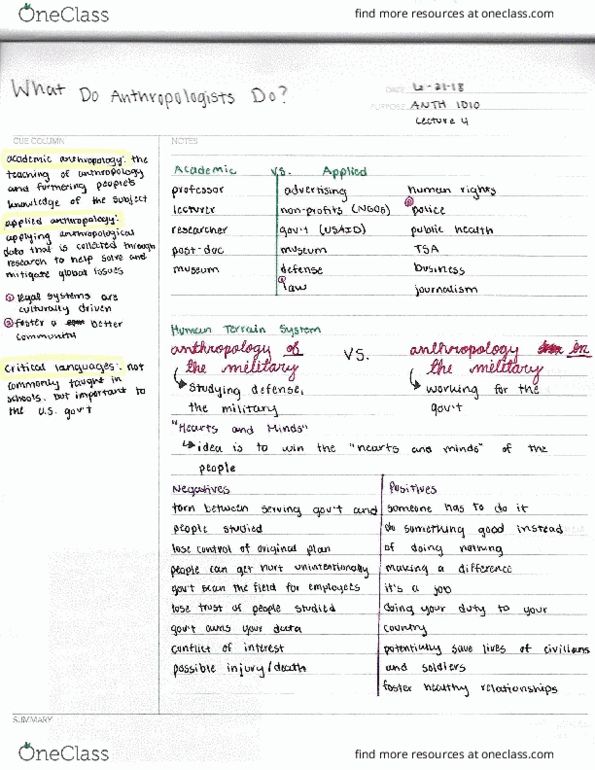 OneClass
find more resources at oneclass.com
What Do Anthropologists Do?
DATE 6-21-18
PURPOSE ANTH 1010
Lecture 4
CUE COLUMN
NOTES
academic anthropology: the
teaching of anthropology
and furthering people's
knowledge of the subject
applied anthropology:
applying anthropological
data that is collected through
research to help solve and
mitigate global issues
① legal systems are
culturally driven
② foster a better
community
critical languages: not
commonly taught in
schools, but important to
the U.S. gov't
Academic vs. Applied
professor advertising human rights
lecturer non-profits (NGOs) ② police
researcher gov't (USAID) public health
post-doc museum TSA
museum defense business
① law journalism
Human Terrain System
anthropology of the military VS. anthropology in the military
↳ studying defense, the military
↳ working for the gov't
"Hearts and Minds"
↳ idea is to win the "hearts and minds" of the
people
Negatives
torn between serving gov't and
people studied
lose control of original plan
people can get hurt unintentionally
gov't scan the field for employees
lose trust of people studied
gov't owns your data
conflict of interest
possible injury/death
Positives
someone has to do it
do something good instead
of doing nothing
making a difference
it's a job
doing your duty to your
country
potentially save lives of civilians
and soldiers
foster healthy relationships
SUMMARY
OneClass
find more resources at oneclass.com